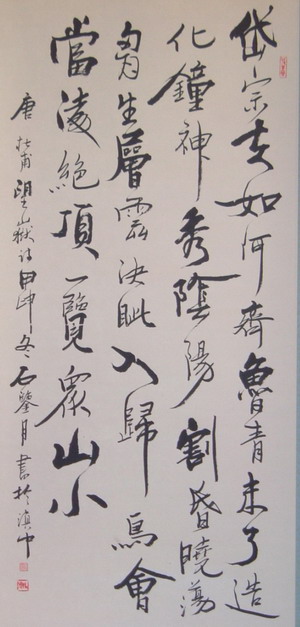 岱宗夫如何齊魯青未了造
化鐘神秀陰陽割昏曉蕩
胷生層雲決眦入歸鳥會
當凌絕頂一覽眾山小
唐杜甫望嶽詩甲申冬石鑒月書於滇中